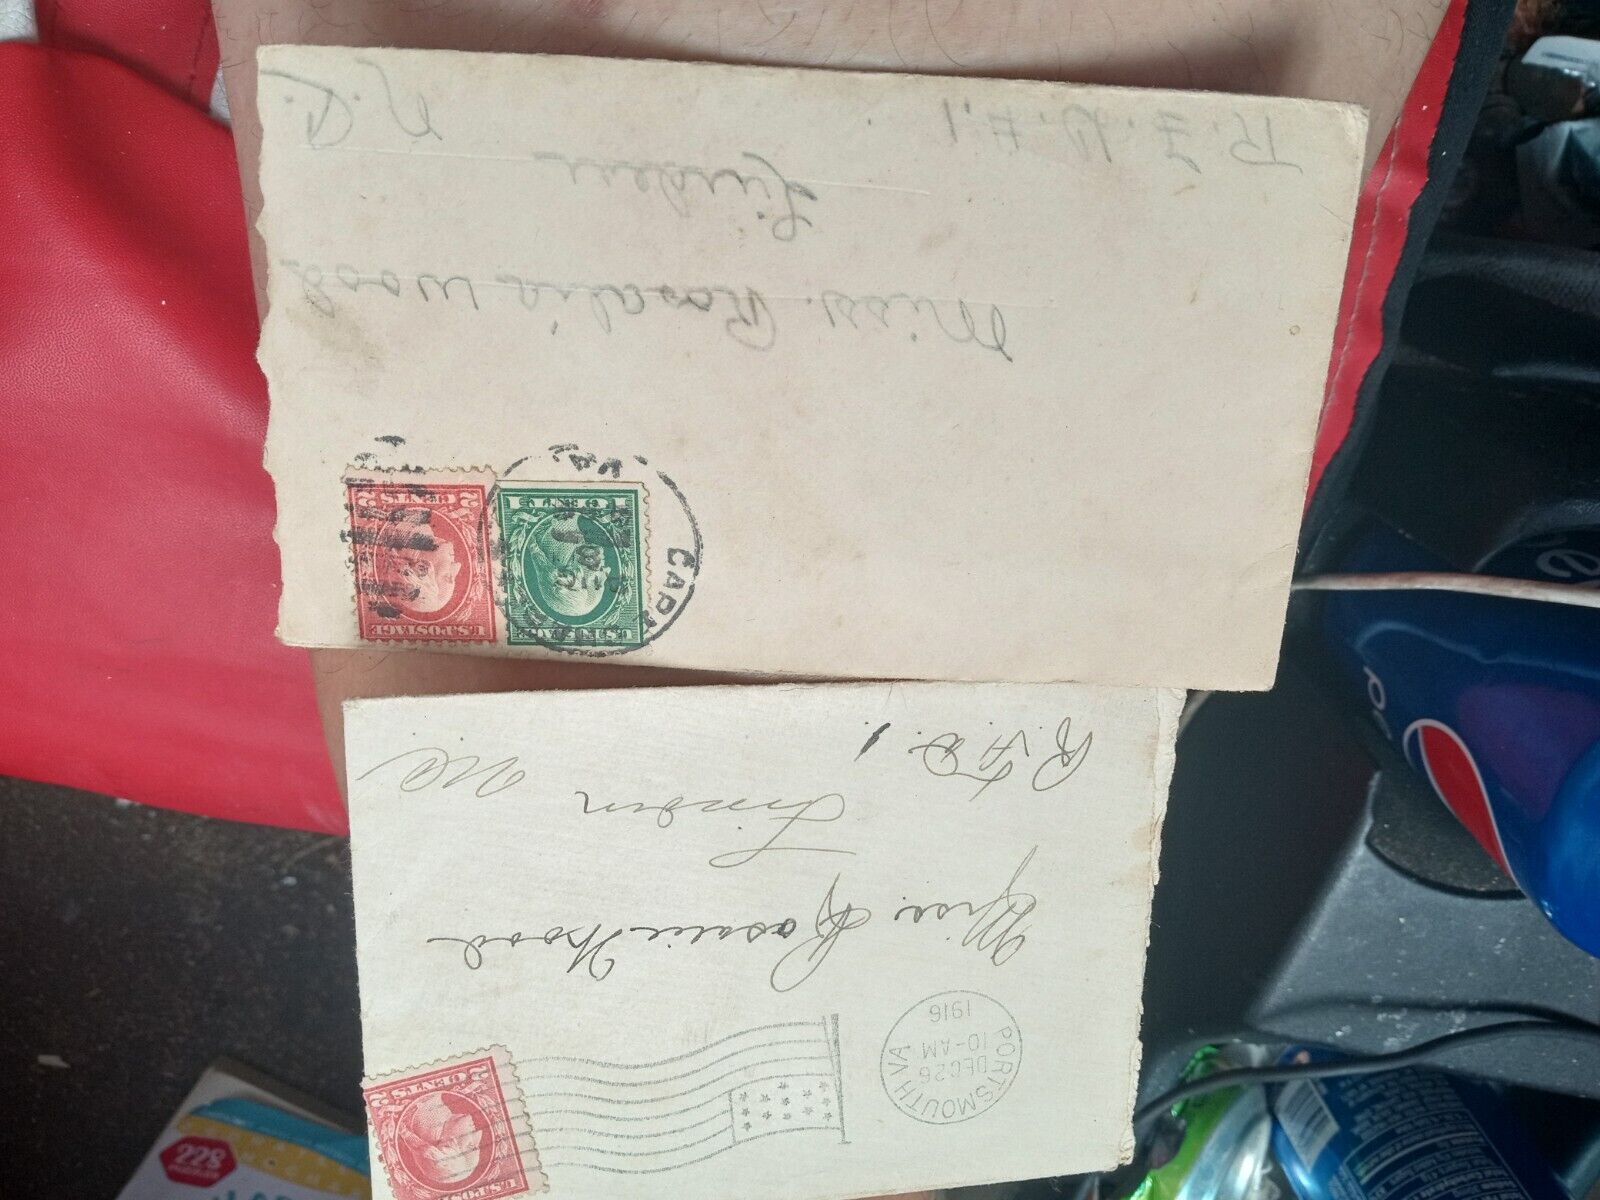 Miss. Rosalia Wood
Linden
R.F.D. #.1
N.C.
2 CENTS 2
U.S. POSTAGE
1 CENT 1
U.S. POSTAGE
VA.
PORTSMOUTH VA
DEC 26
10-AM
1916
2 CENTS 2
U.S. POSTAGE
Miss. Rosalie Wood
Linden
R.F.D. 1.
N.C.
228